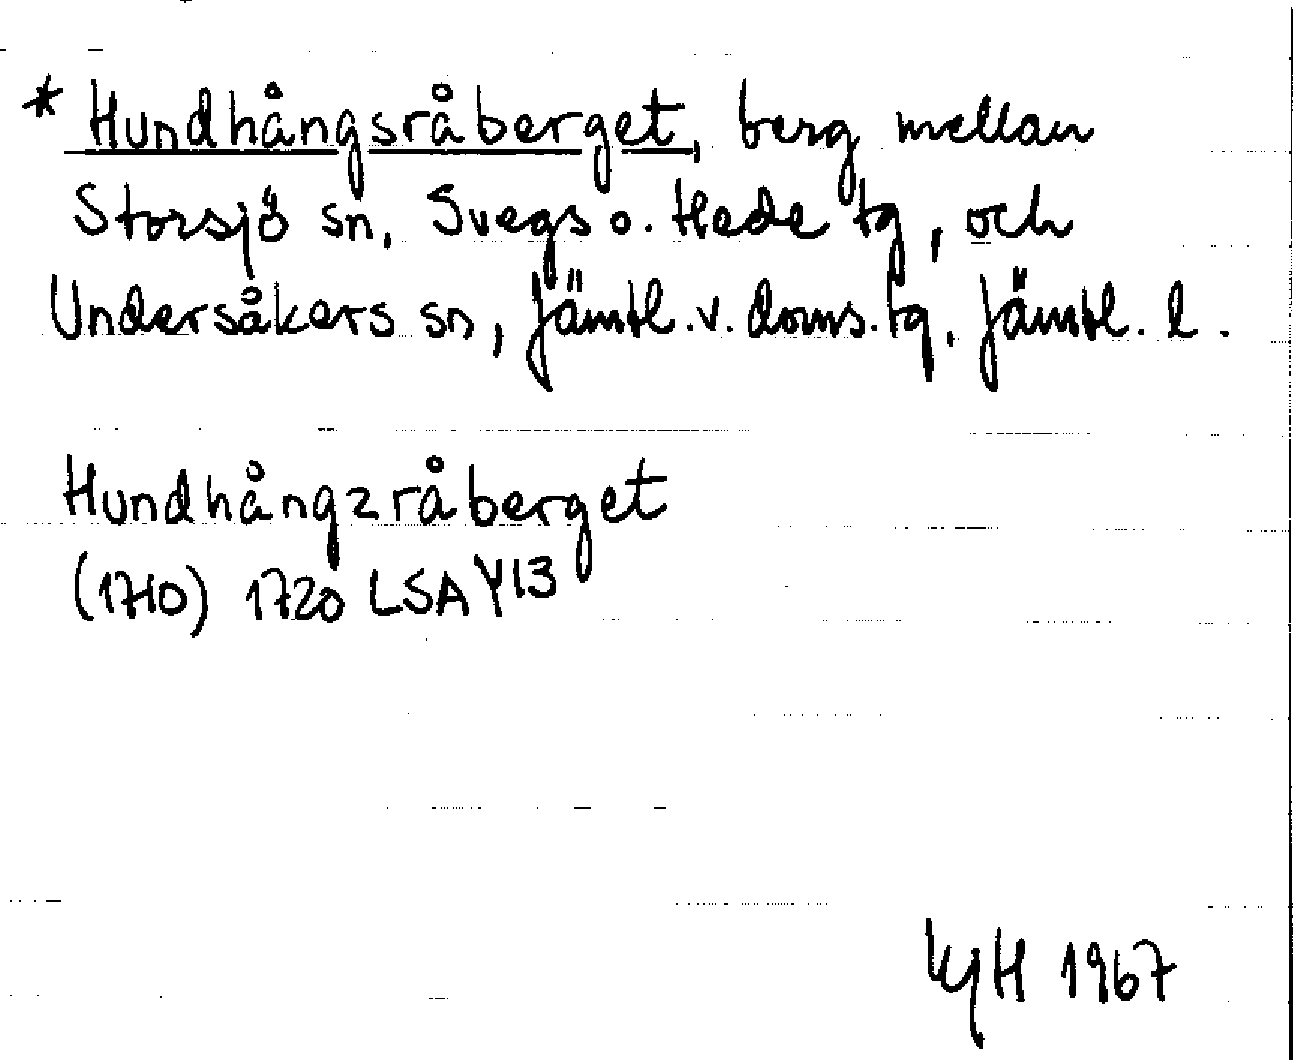 * Hundhångsråberget, berg mellan
Storsjö sn, Svegs o. Hede tg, och
Undersåkers sn, Jämtl. v. doms. tg. Jämtl. l.
Hundhångzråberget
(1710) 1720 LSA Y13
KJH 1967